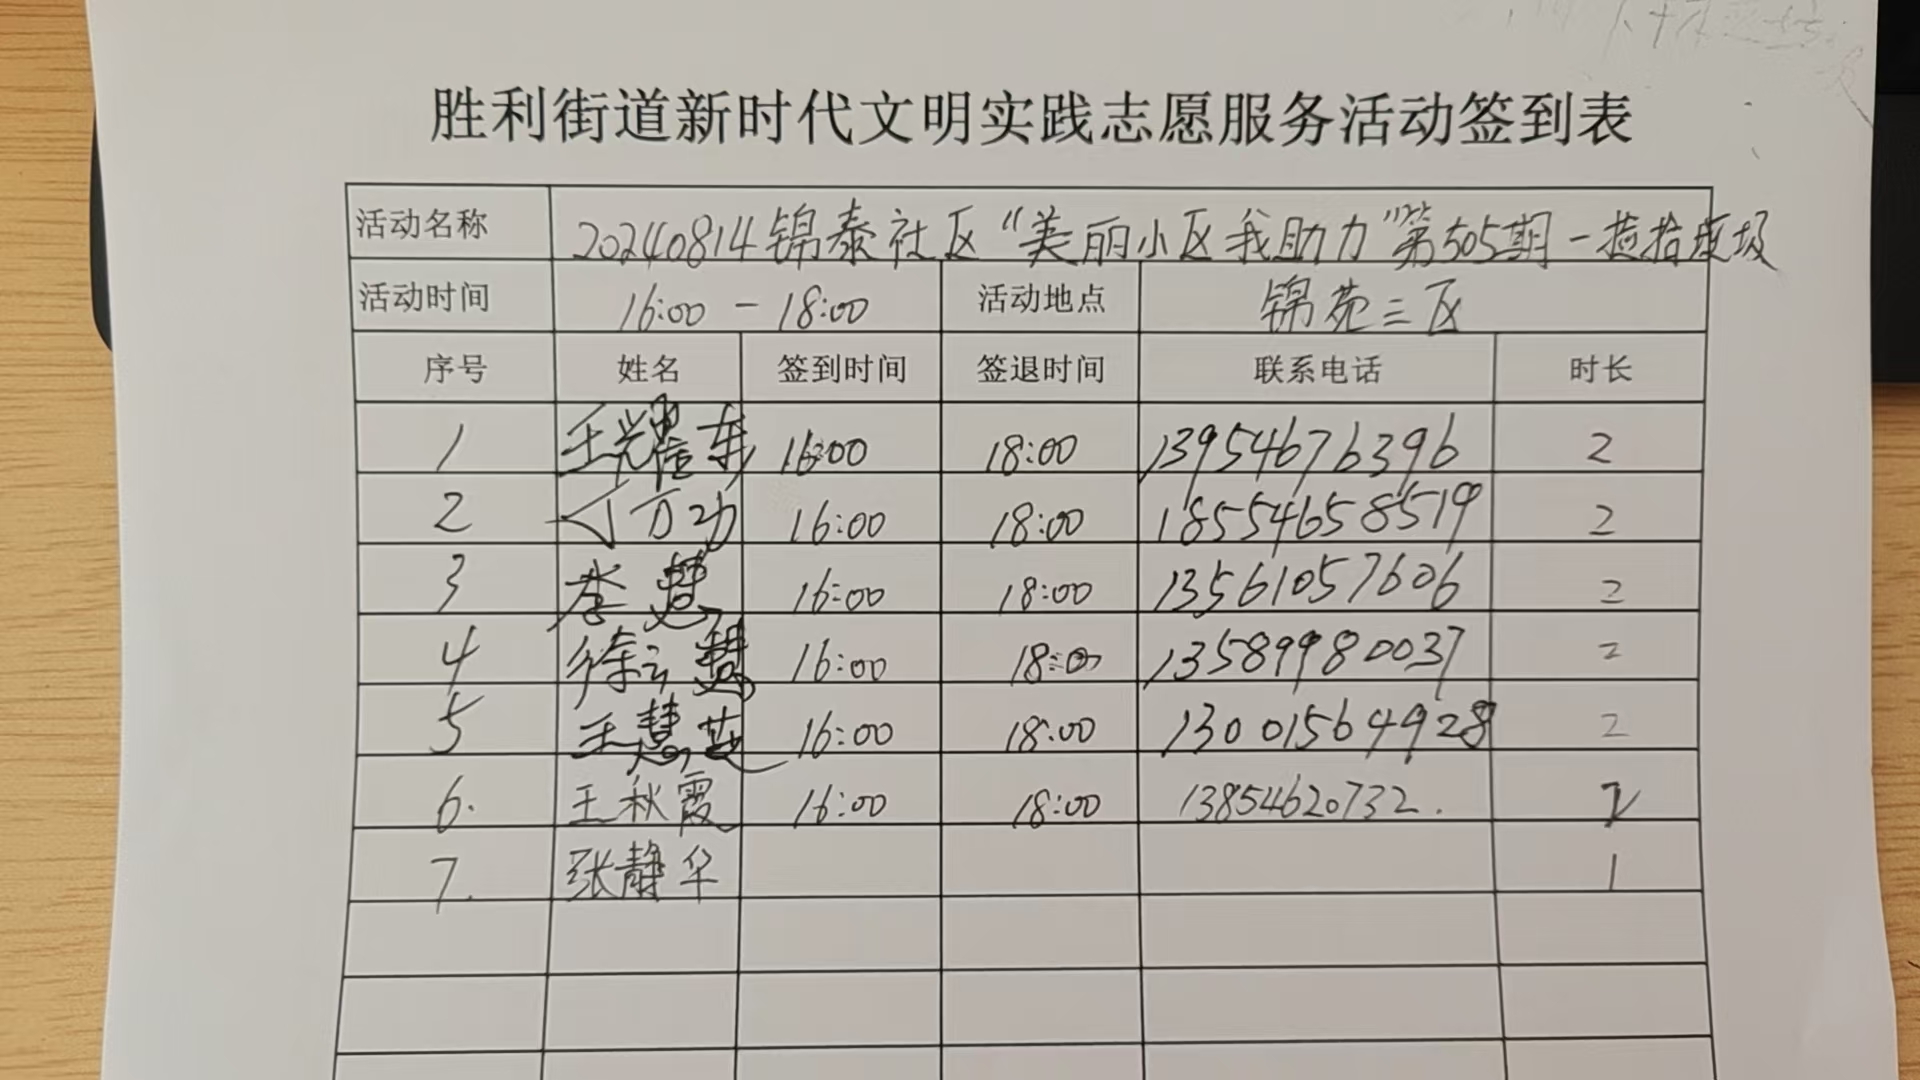 胜利街道新时代文明实践志愿服务活动签到表
活动名称 20240814锦泰社区“美丽小区我助力”第505期-捡拾垃圾
活动时间 16:00-18:00 活动地点 锦苑三区
序号 姓名 签到时间 签退时间 联系电话 时长
1 王耀东 16:00 18:00 13954676396 2
2 万功 16:00 18:00 18554658519 2
3 李慧 16:00 18:00 13561057606 2
4 徐云慧 16:00 18:00 13589980037 2
5 王慧芝 16:00 18:00 13001564928 2
6. 王秋霞 16:00 18:00 13854620732. 2
7. 张静华 1